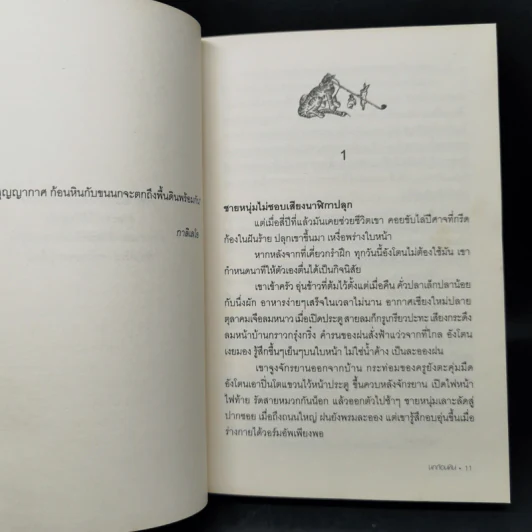 ญญากาศ ก้อนหินกับขนนกจะตกถึงพื้นดินพร้อมกัน
กาลิเลโอ
1
ชายหนุ่มไม่ชอบเสียงนาฬิกาปลุก
แต่เมื่อสี่ปีที่แล้วมันเคยช่วยชีวิตเขา คอยขับไล่ปีศาจที่กรีด
ก้องในฝันร้าย ปลุกเขาขึ้นมา เหงื่อพร่างใบหน้า
หากหลังจากที่เคี่ยวกรำฝึก ทุกวันนี้อังโตนไม่ต้องใช้มัน เขา
กำหนดนาทีให้ตัวเองตื่นได้เป็นกิจนิสัย
เขาเข้าครัว อุ่นข้าวที่ต้มไว้ตั้งแต่เมื่อคืน คั่วปลาเล็กปลาน้อย
กับนึ่งผัก อาหารง่ายๆเสร็จในเวลาไม่นาน อากาศเชียงใหม่ปลาย
ตุลาคมเจือลมหนาว เมื่อเปิดประตู สายลมก็กรูเกรียวปะทะ เสียงกระดึง
ลมหน้าบ้านกราวกรุ๋งกริ๋ง คำรนของฝนสั่งฟ้าแว่วจากที่ไกล อังโตน
เงยมอง รู้สึกชื้นๆเย็นๆบนใบหน้า ไม่ใช่น้ำค้าง เป็นละอองฝน
เขาจูงจักรยานออกจากบ้าน กระท่อมของครูยังตะคุ่มมืด
อังโตนเอาปิ่นโตแขวนไว้หน้าประตู ขึ้นควบหลังจักรยาน เปิดไฟหน้า
ไฟท้าย รัดสายหมวกกันน็อก แล้วออกตัวไปช้าๆ ชายหนุ่มเลาะลัดสู่
ปากซอย เมื่อถึงถนนใหญ่ ฝนยังพรมละออง แต่เขารู้สึกอบอุ่นขึ้นเมื่อ
ร่างกายได้วอร์มอัพเพียงพอ
นกก้อนหิน • 11